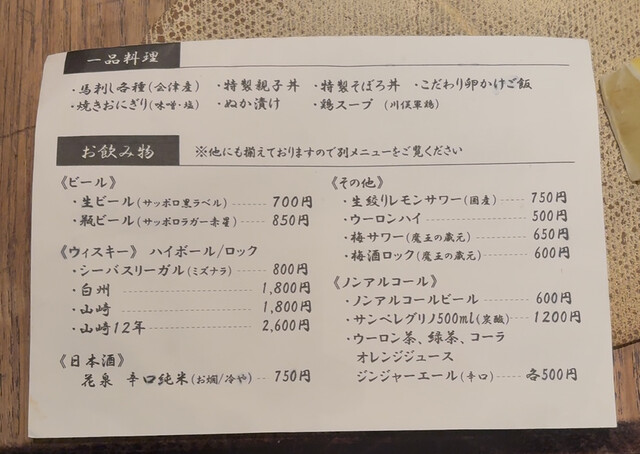 一品料理
・馬刺し各種(会津産) ・特製親子丼 ・特製そぼろ丼 ・こだわり卵かけご飯
・焼きおにぎり(味噌・塩) ・ぬか漬け ・鶏スープ (川俣軍鶏)
お飲み物 ※他にも揃えておりますので別メニューをご覧ください
《ビール》
・生ビール(サッポロ黒ラベル) 700円
・瓶ビール(サッポロラガー赤星) 850円
《ウィスキー》 ハイボール/ロック
・シーバスリーガル(ミズナラ) 800円
・白州 1,800円
・山崎 1,800円
・山崎12年 2,600円
《日本酒》
花泉 辛口純米(お燗/冷や) 750円
《その他》
・生絞りレモンサワー(国産) 750円
・ウーロンハイ 500円
・梅サワー(魔王の蔵元) 650円
・梅酒ロック(魔王の蔵元) 600円
《ノンアルコール》
・ノンアルコールビール 600円
・サンペレグリノ500ml(炭酸) 1200円
・ウーロン茶、緑茶、コーラ
オレンジジュース
ジンジャーエール(辛口) 各500円